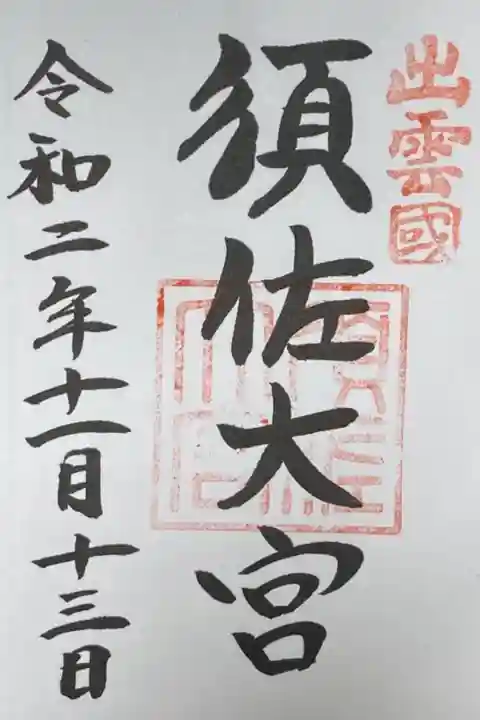 出雲國
須佐大宮
令和二年十一月十三日